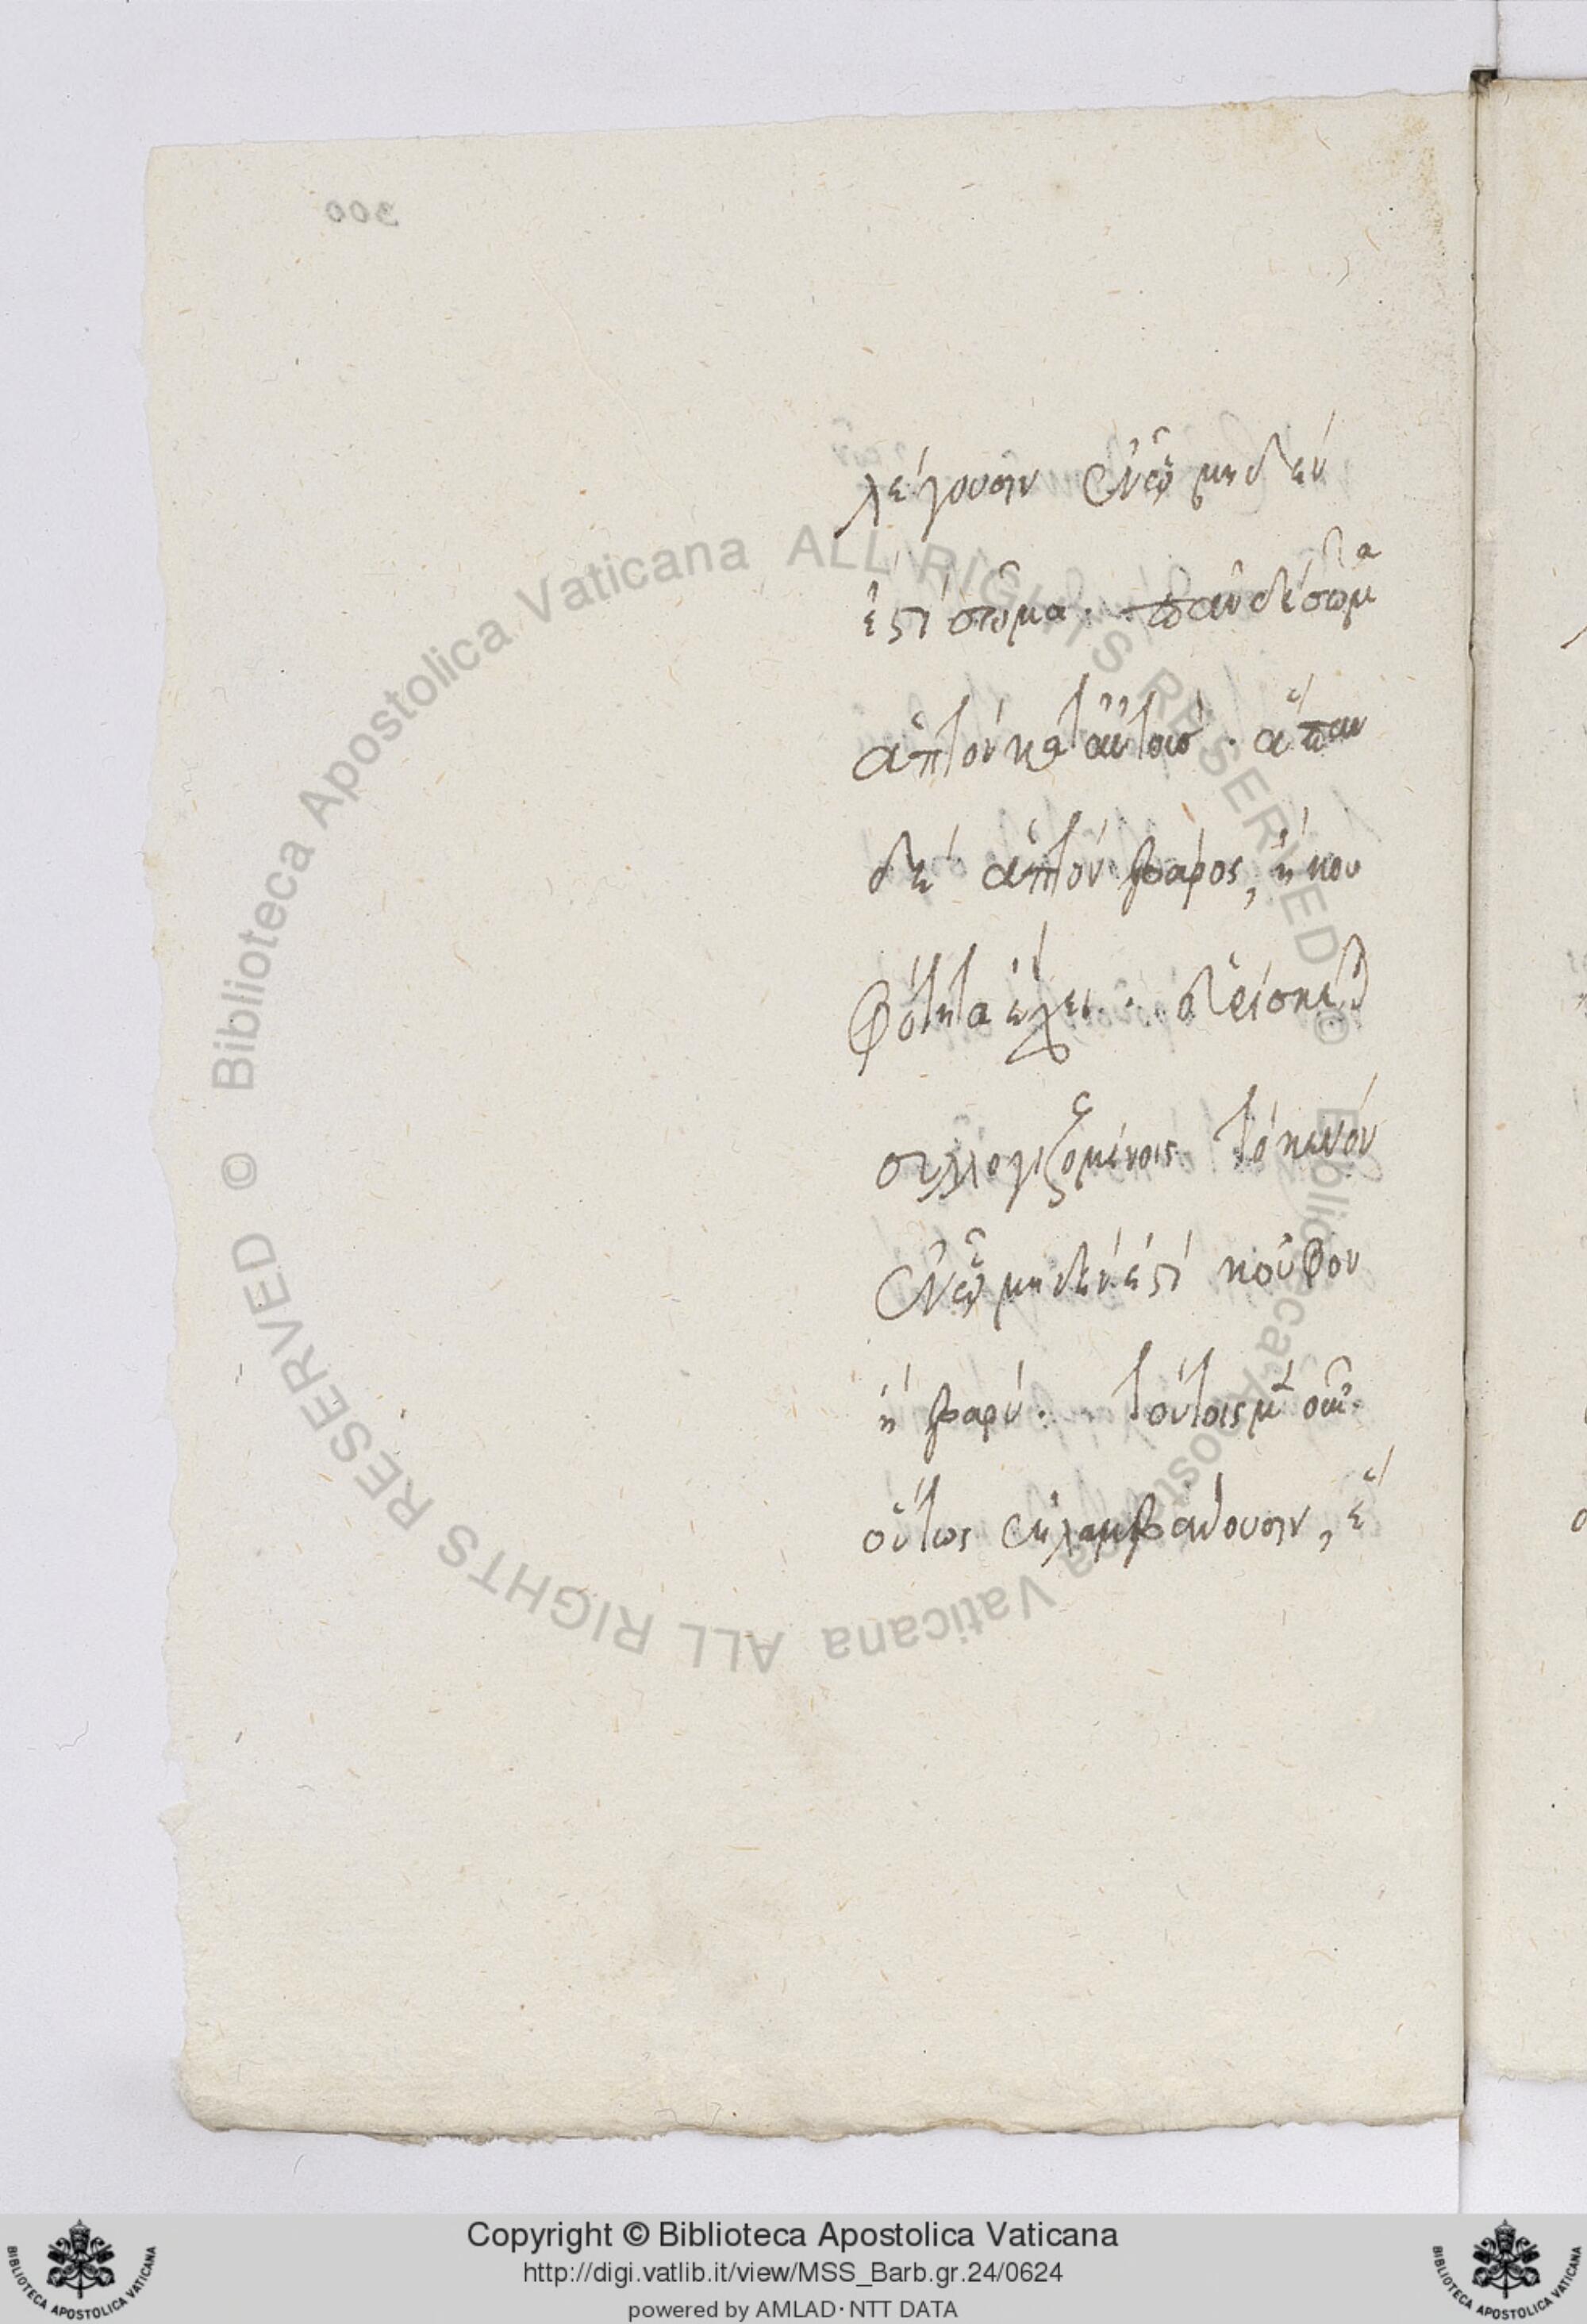 λέγουσιν ἐν ᾧ μηδέν
ἐστι σῶμα. πᾶν δὲ σῶμα
ἁπτὸν κατ' αὐτούς. ἅπαν
δὲ ἁπτὸν βάρος, ἢ κου
φότητα ἔχει.
συλλογιζομένοις τὸ κενὸν
ἐν ᾧ μηδέν ἐστι κοῦφον
ἢ βαρύ. τούτοις μὲν οὖν
οὕτως ἐκλαμβάνουσιν, ἕ
300
© Biblioteca Apostolica Vaticana ALL RIGHTS RESERVED © Biblioteca Apostolica Vaticana ALL RIGHTS RESERVED
Copyright © Biblioteca Apostolica Vaticana
http://digi.vatlib.it/view/MSS_Barb.gr.24/0624
powered by AMLAD·NTT DATA
BIBLIOTECA APOSTOLICA VATICANA
BIBLIOTECA APOSTOLICA VATICANA